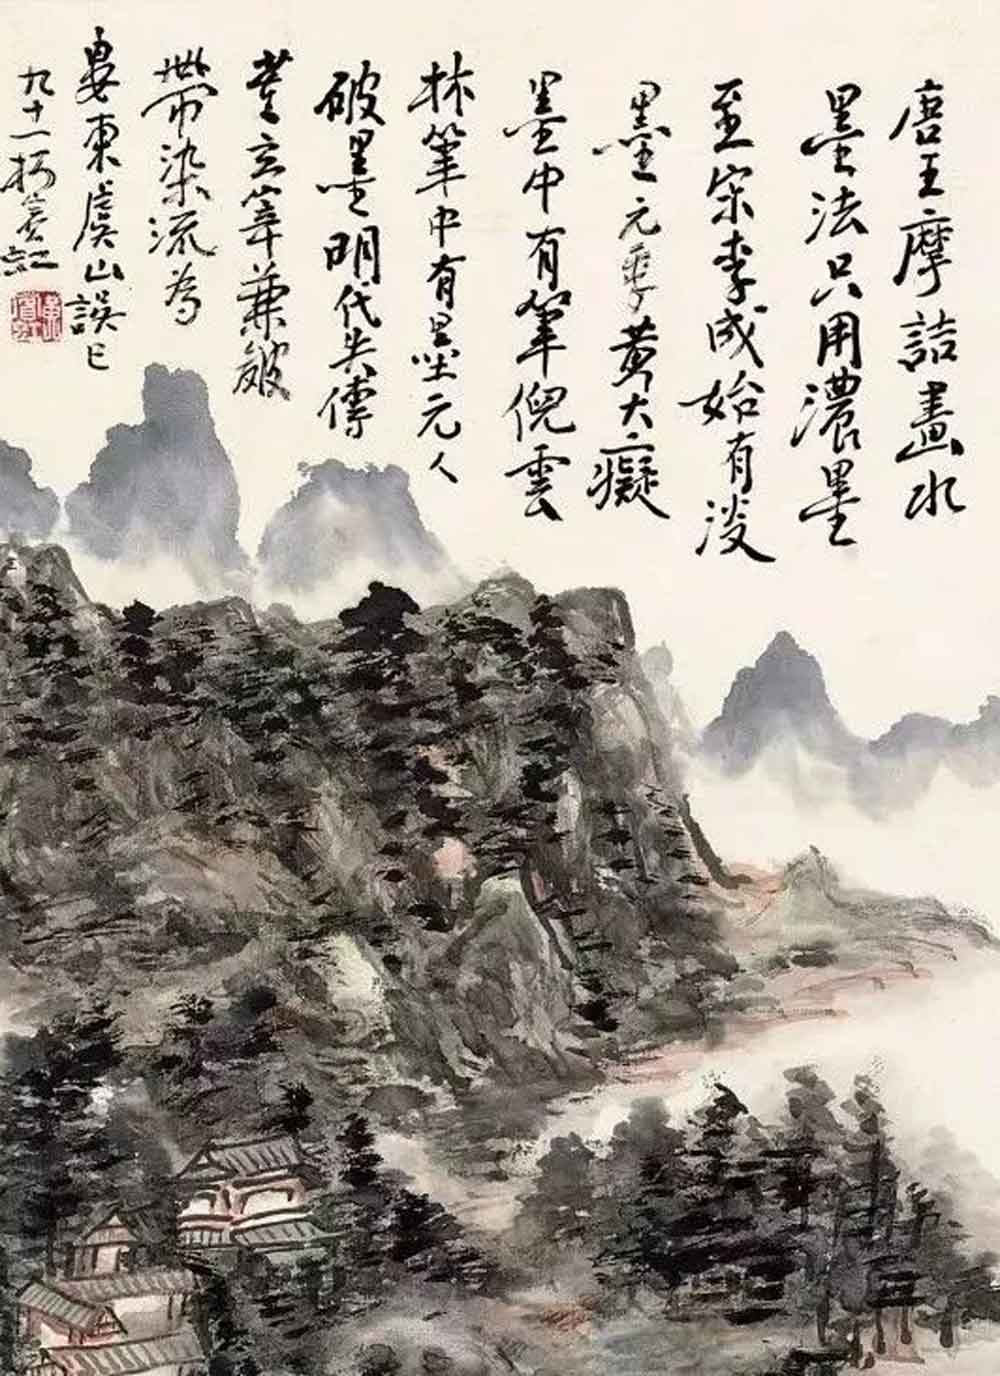 唐王摩詰畫水
墨法只用濃墨
至宋李成始有淡
墨元季黄大癡
墨中有筆倪雲
林筆中有墨元人
破墨明代失傳
董玄宰兼皴
帶染流為
婁東虞山誤已
九十一賓虹